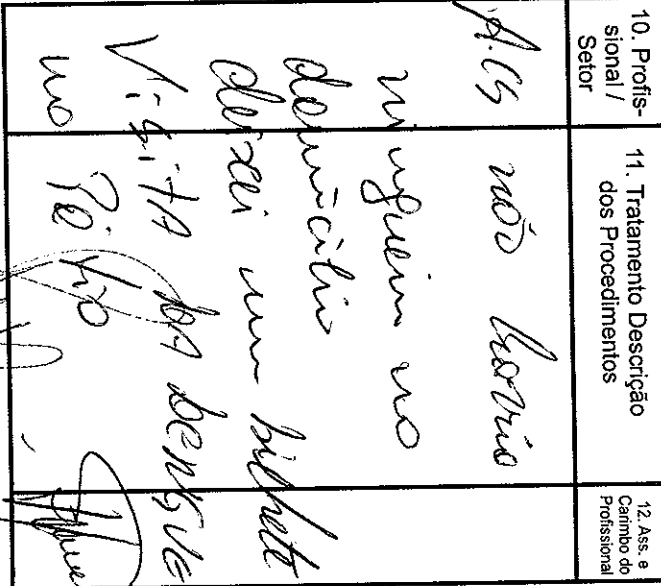 10. Profis-
sional /
Setor
11. Tratamento Descrição
dos Procedimentos
12. Ass. e
Carimbo do
Profissional
A.CS não havia
ninguém no
domicílio
deixei um bilhete
Visita DA DENGUE
no